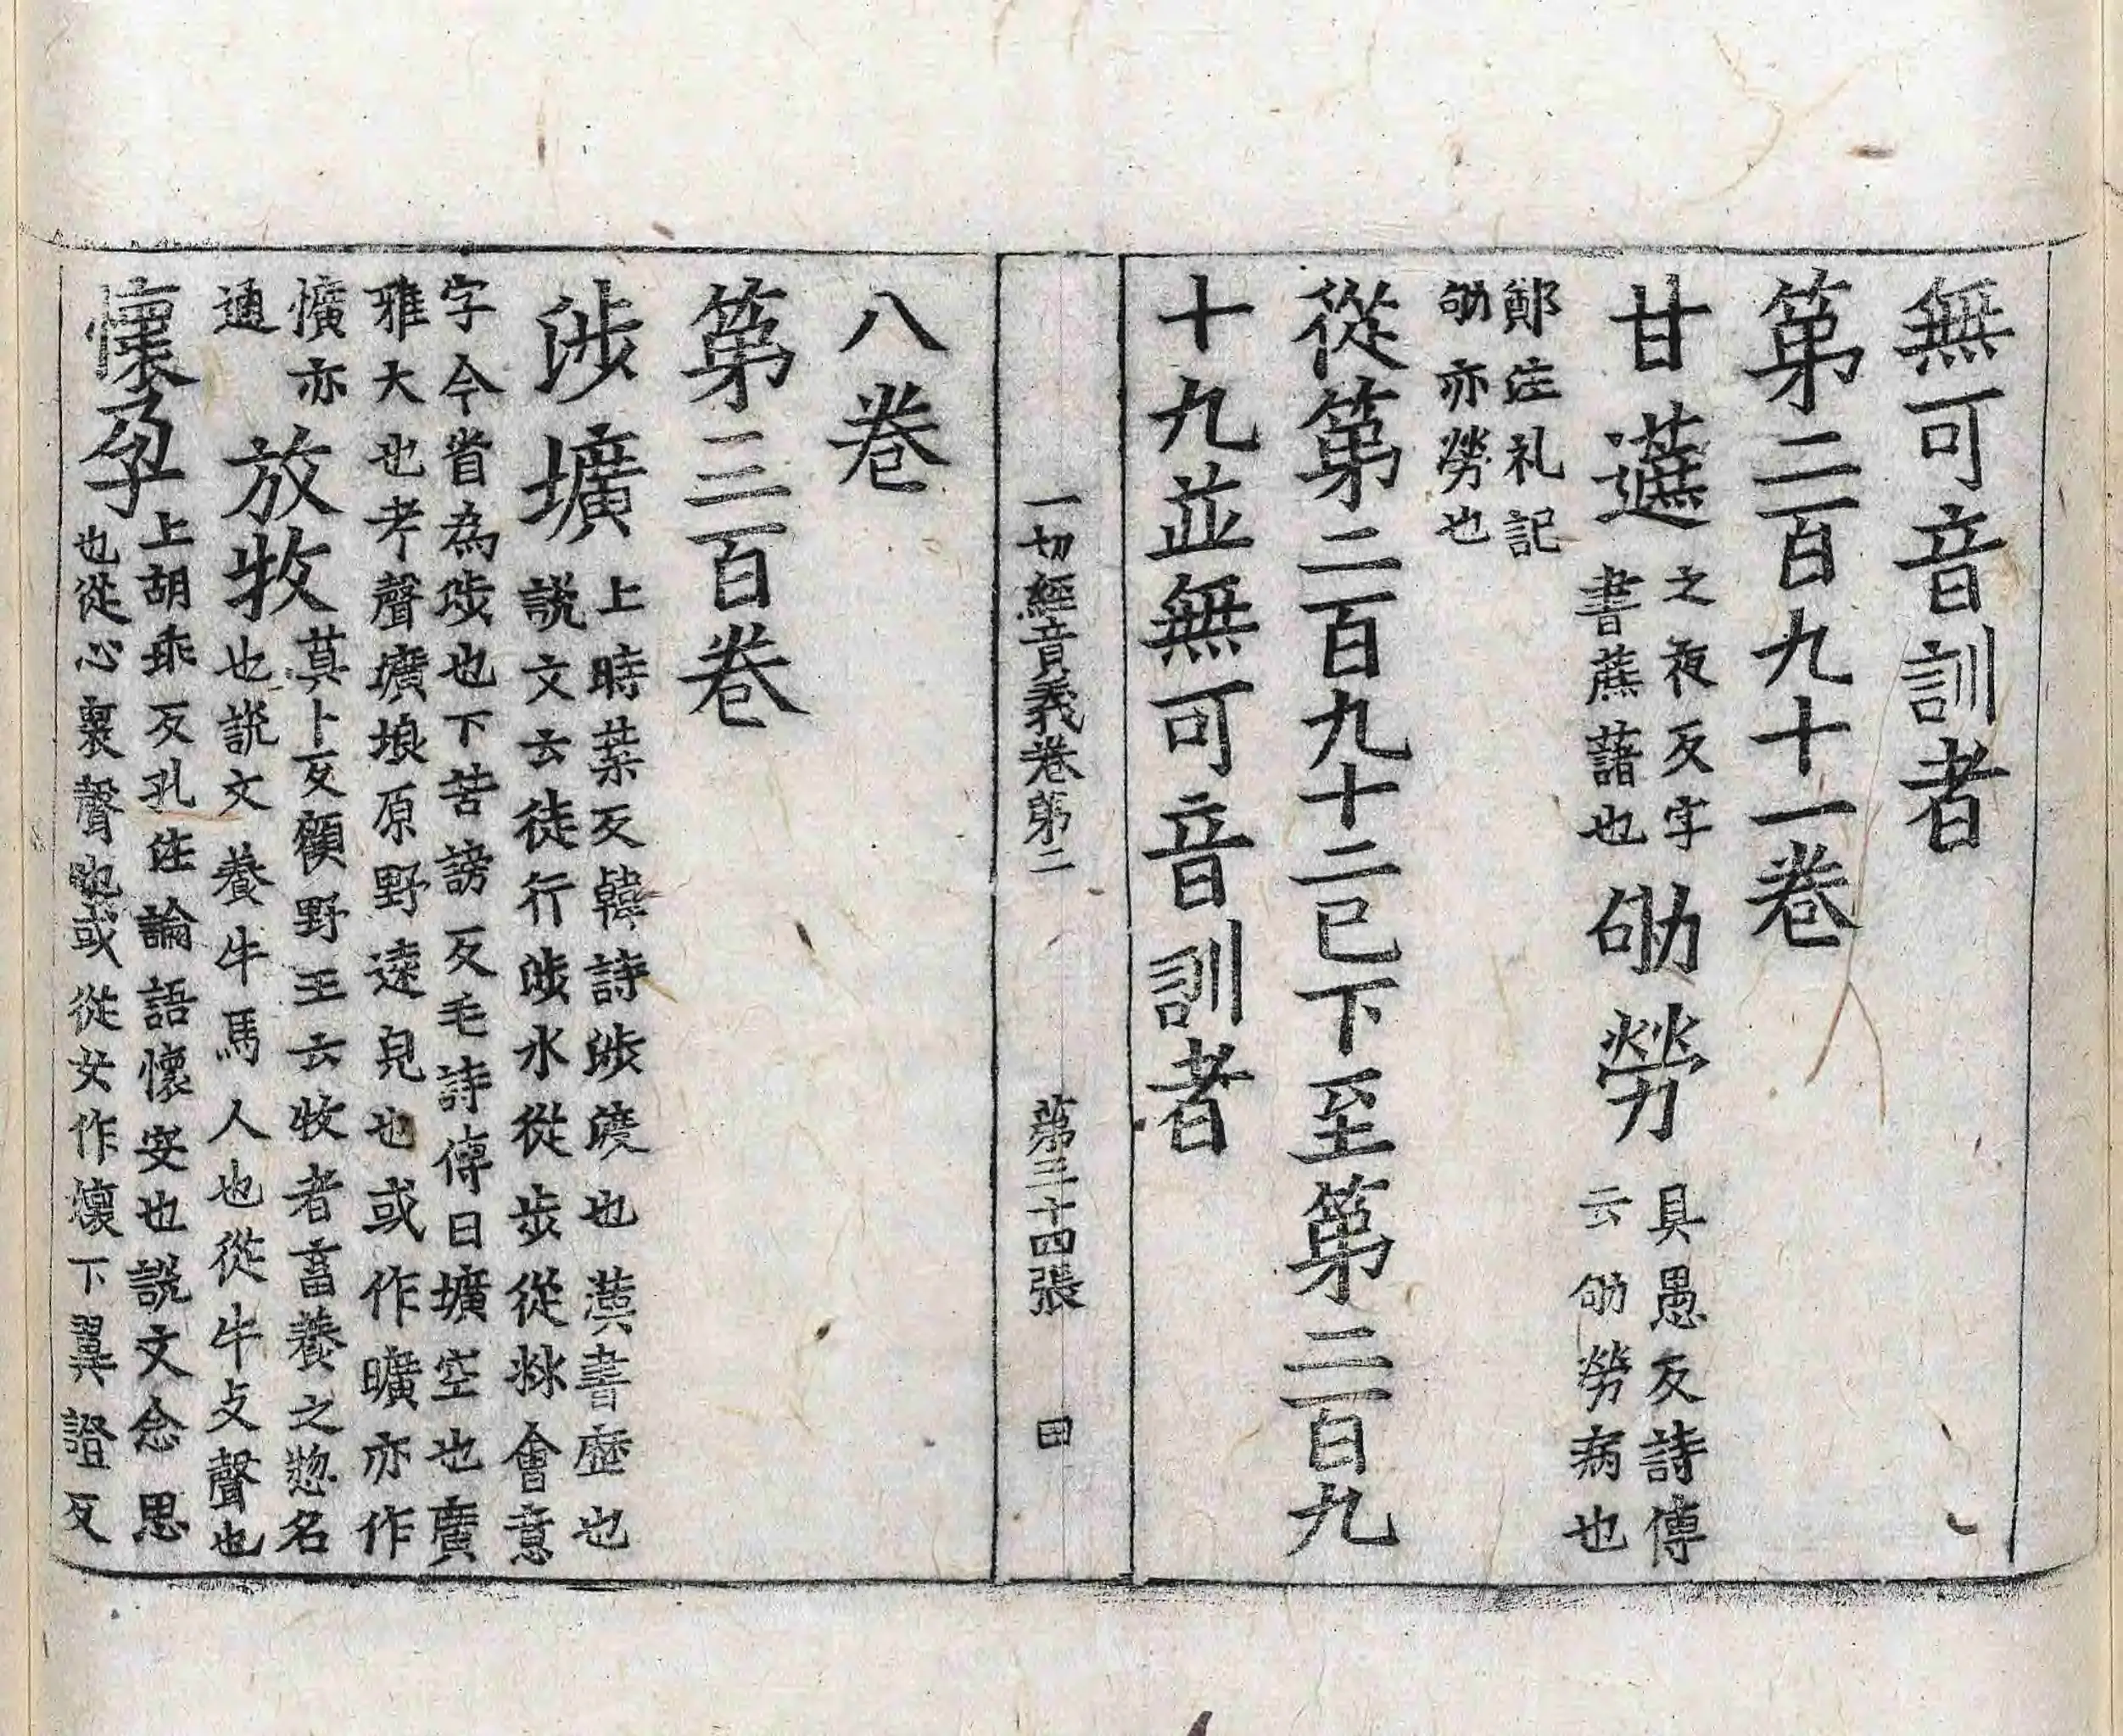 無可音訓者
第二百九十一卷
甘䗪之夜反字書蔗藷也劬勞具愚反詩傳云劬勞病也
鄭注礼記劬亦勞也
從第二百九十二已下至第二百九
十九並無可音訓者
一切經音義卷第二　第三十四張　曰
八卷
第三百卷
涉壙上時葉反韓詩涉渡也漢書歴也說文云徒行涉水從步從沝會意
字今省為涉也下苦謗反毛詩傳曰壙空也廣雅大也考聲壙埌原野遠皃也或作曠亦作
懭亦通放牧莫卜反顧野王云牧者畜養之惣名也說文養牛馬人也從牛攴聲也
懷孕上胡乖反孔注論語懷安也說文念思也從心褱聲也或從女作㜳下翼證反